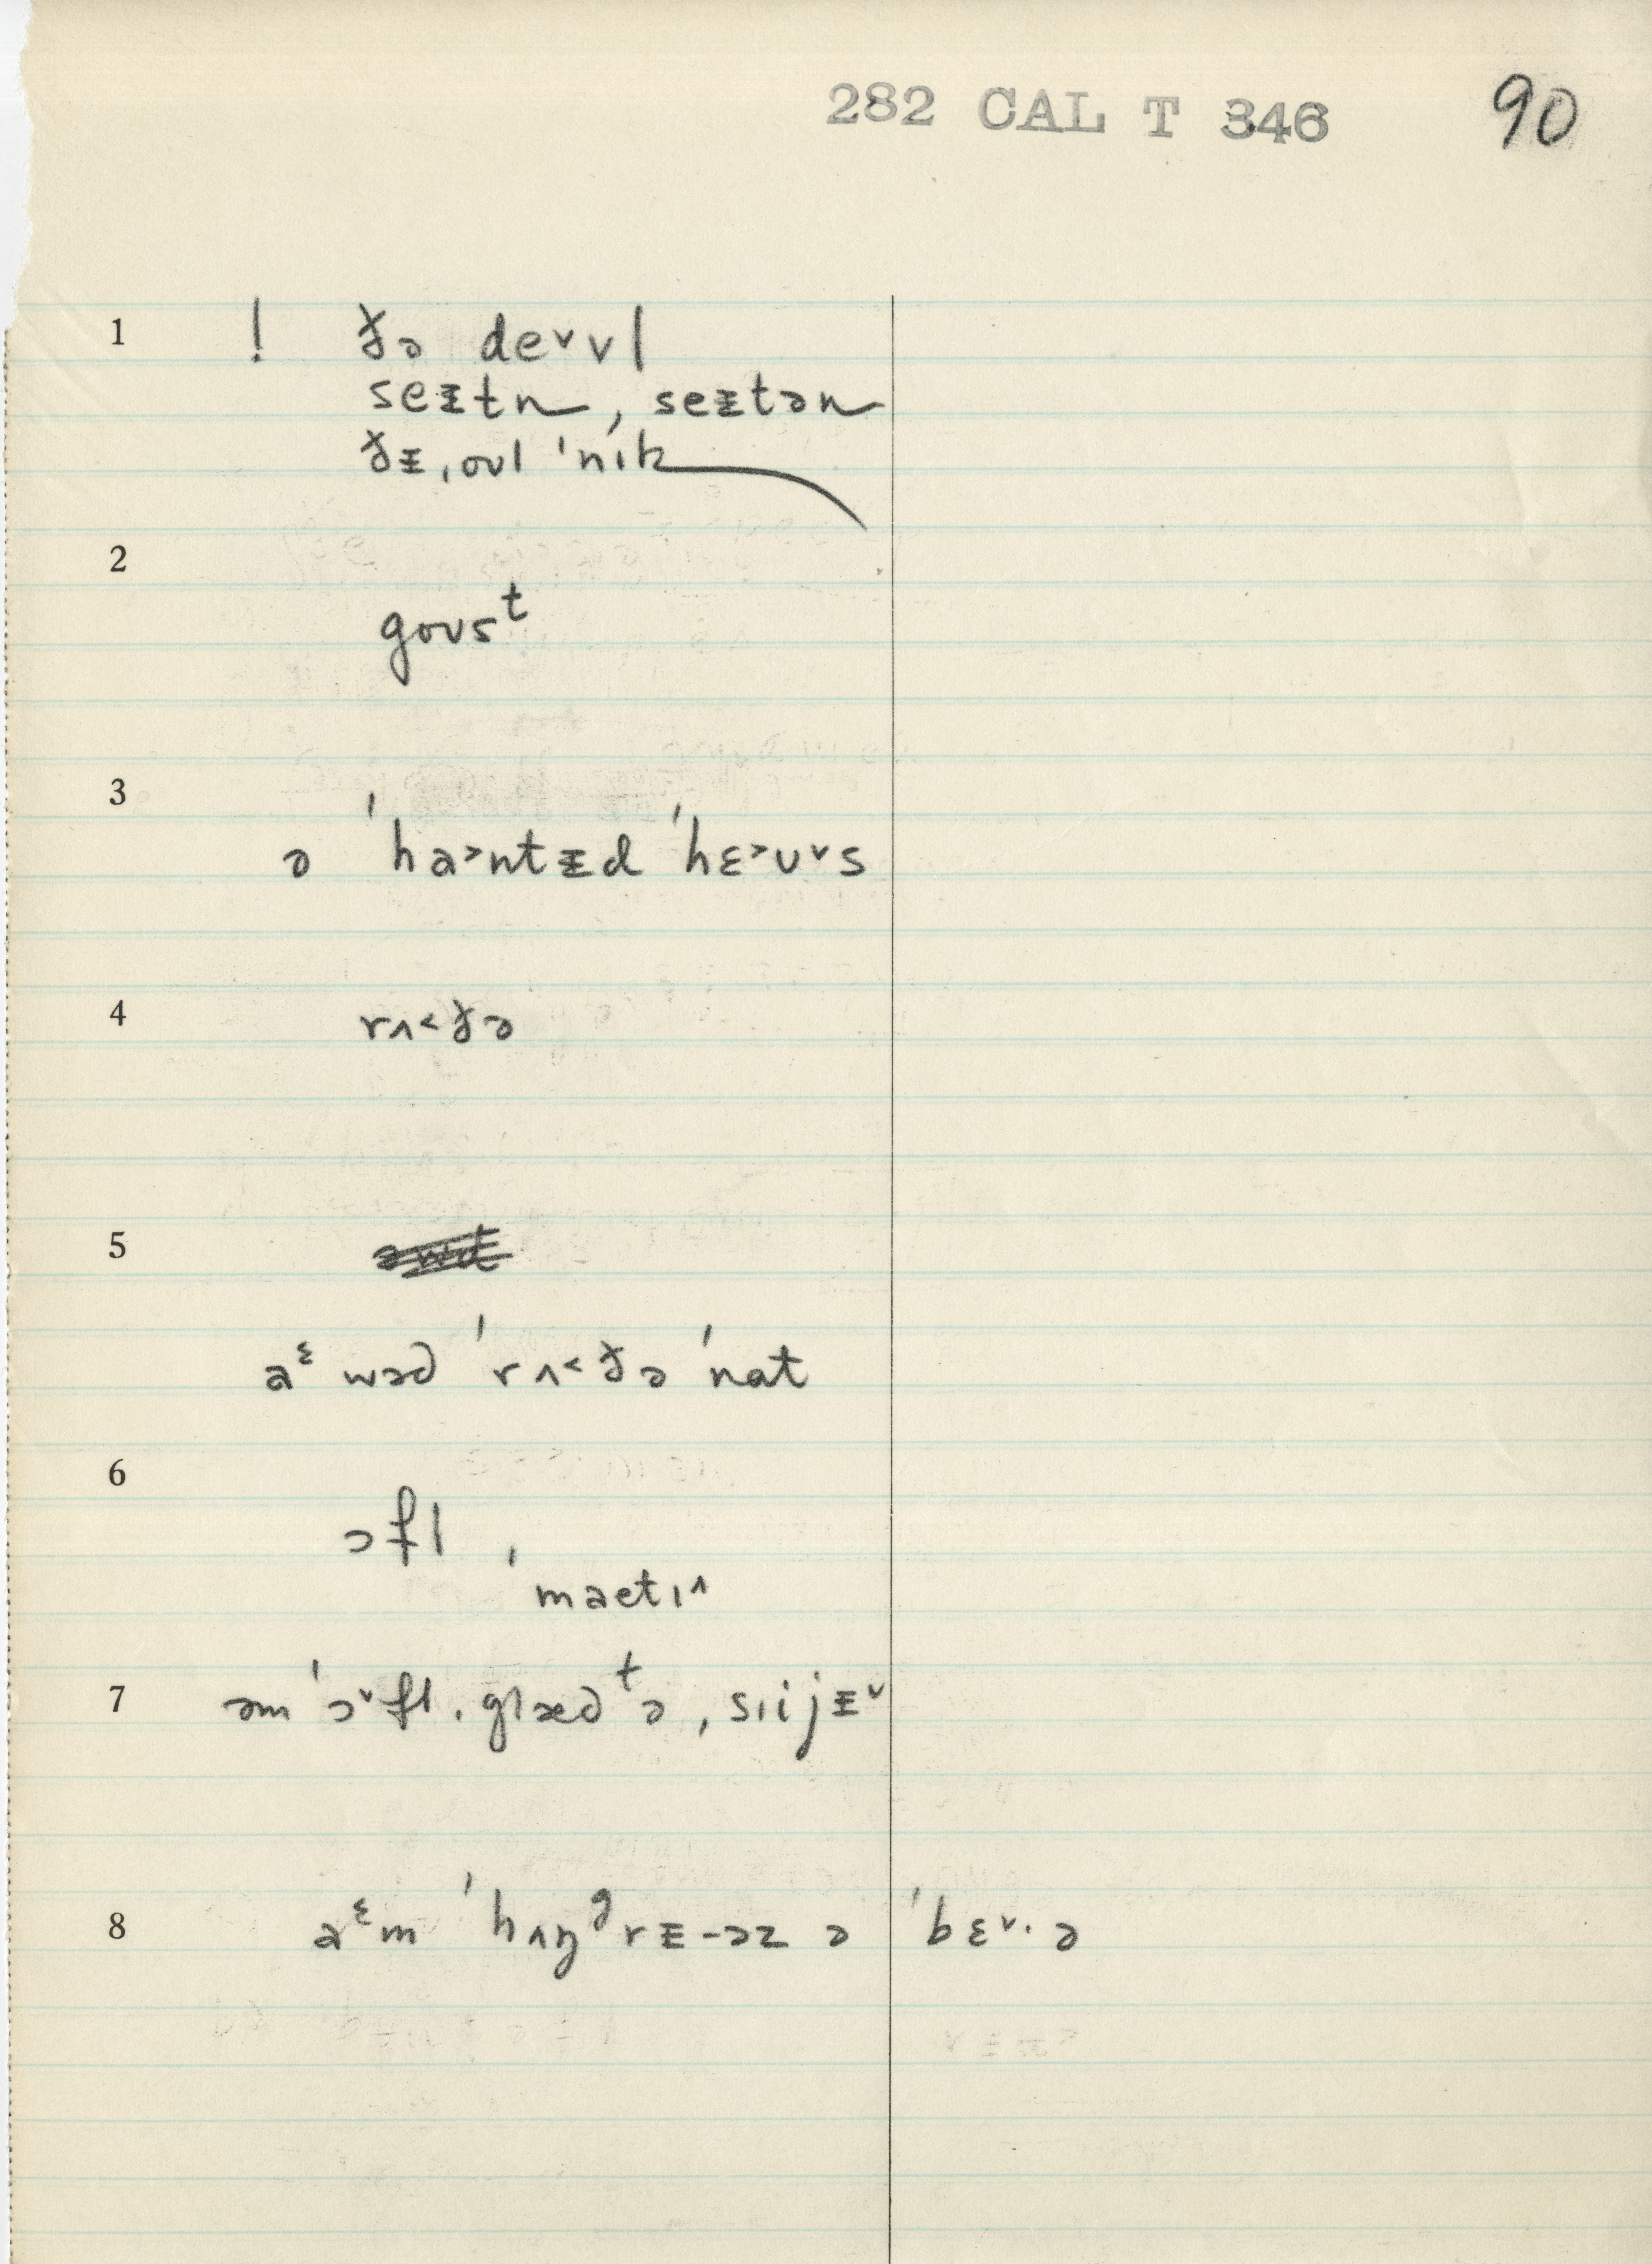 282 CAL T 346 90
1 ! ðə deᵛvl
seᵻtn, seᵻtən
ðᵻ ˌoʊl ˈnɪk
2
goʊsᵗ
3
ə ˈha˃ntᵻd ˈhɛ˃ʊᵛs
4 rʌ˂ðə
5
aᵋ wəd ˈrʌ˂ðə ˈnat
6
ɔfl ,
ˈmaetɪ^
7 əm ˈɔᵛfl ˌglæd ᵗə ˌsɪijᵻᵛ
8 aᵋm ˈhʌŋᵍrᵻ-əz ə ˈbɛᵛ·ə